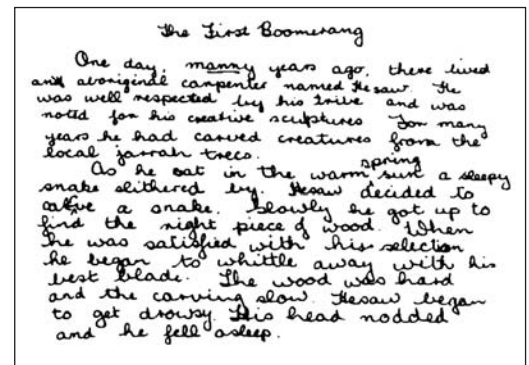 The First Boomerang
One day, manny years ago, there lived
an aboriginal carpenter named Hesaw. He
was well respected by his trive and was
noted for his creative sculptures For many
years he had carved creatures from the
local jarrah trees.
As he sat in the warm spring sun a sleepy
snake slithered by. Hesaw decided to
carve a snake. Slowly he got up to
find the right piece of wood. When
he was satisfied with his selection
he began to whittle away with his
best blade. The wood was hard
and the carving slow. Hesaw began
to get drowsy. His head nodded
and he fell asleep.